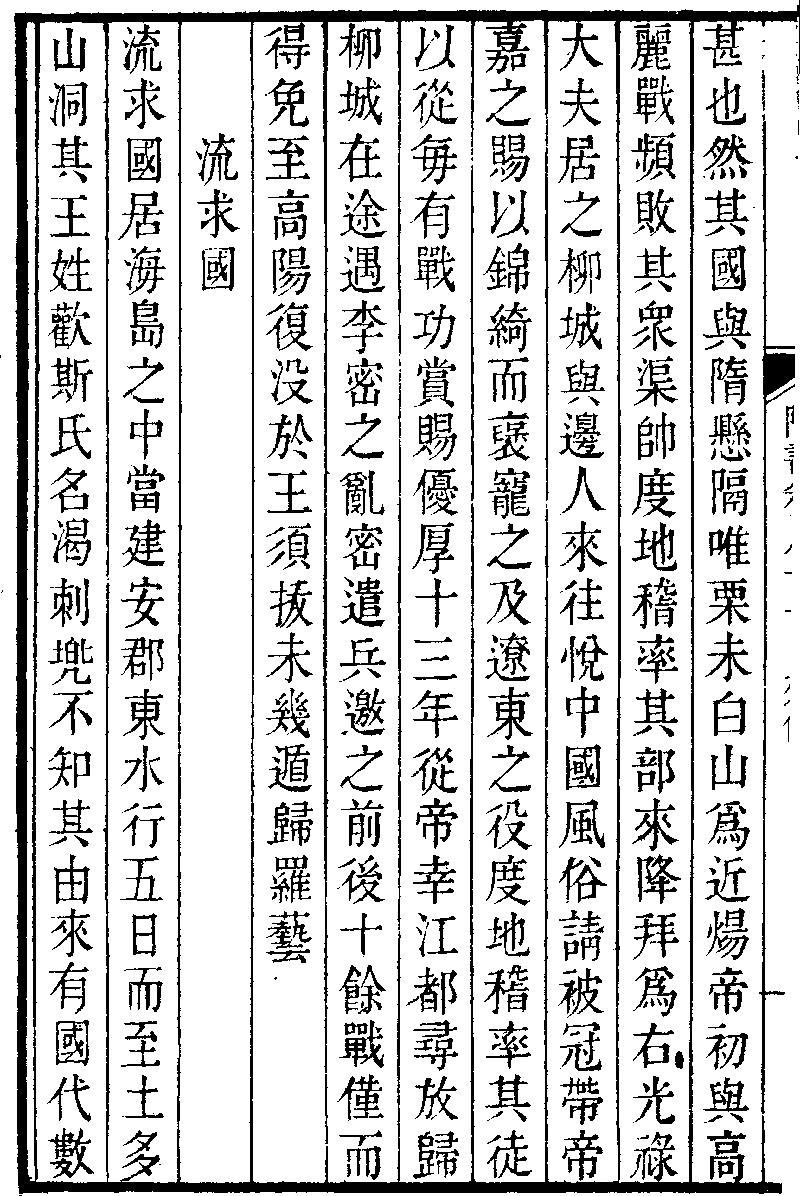 甚也然其國與隋懸隔唯栗末白山爲近煬帝初與高
麗戰頻敗其衆渠帥度地稽率其部來降拜爲右光祿
大夫居之柳城與邊人來往悅中國風俗請被冠帶帝
嘉之賜以錦綺而襃寵之及遼東之役度地稽率其徒
以從每有戰功賞賜優厚十三年從帝幸江都尋放歸
柳城在途遇李密之亂密遣兵邀之前後十餘戰僅而
得免至高陽復没於王須拔未幾遁歸羅藝
流求國
流求國居海島之中當建安郡東水行五日而至土多
山洞其王姓歡斯氏名渴刺兜不知其由來有國代數